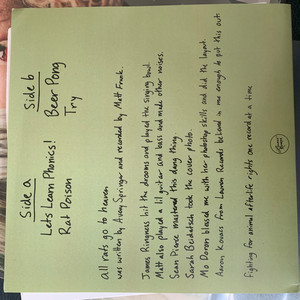 Side a
Lets Learn Phonics!
Rat Poison
Side b
Beer Pong
Try
All rats go to heaven
was written by Avery Springer and recorded by Matt Frank.
James Ringness hit the drums and played the singing bowl.
Matt also played a lil guitar and bass and made other noises.
Sean Pierce mastered this dang thing
Sarah Beidatsch took the cover photo.
Mo Doron blessed me with her photoshop skills and did the layout.
Aaron Kovacs from Lauren Records believed in me enough to put this out!
Fighting for animal afterlife rights one record at a time